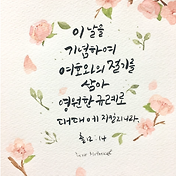 이 날을
기념하여
여호와의 절기를
삼아
영원한 규례로
대대에 지킬지니라
출 12:14